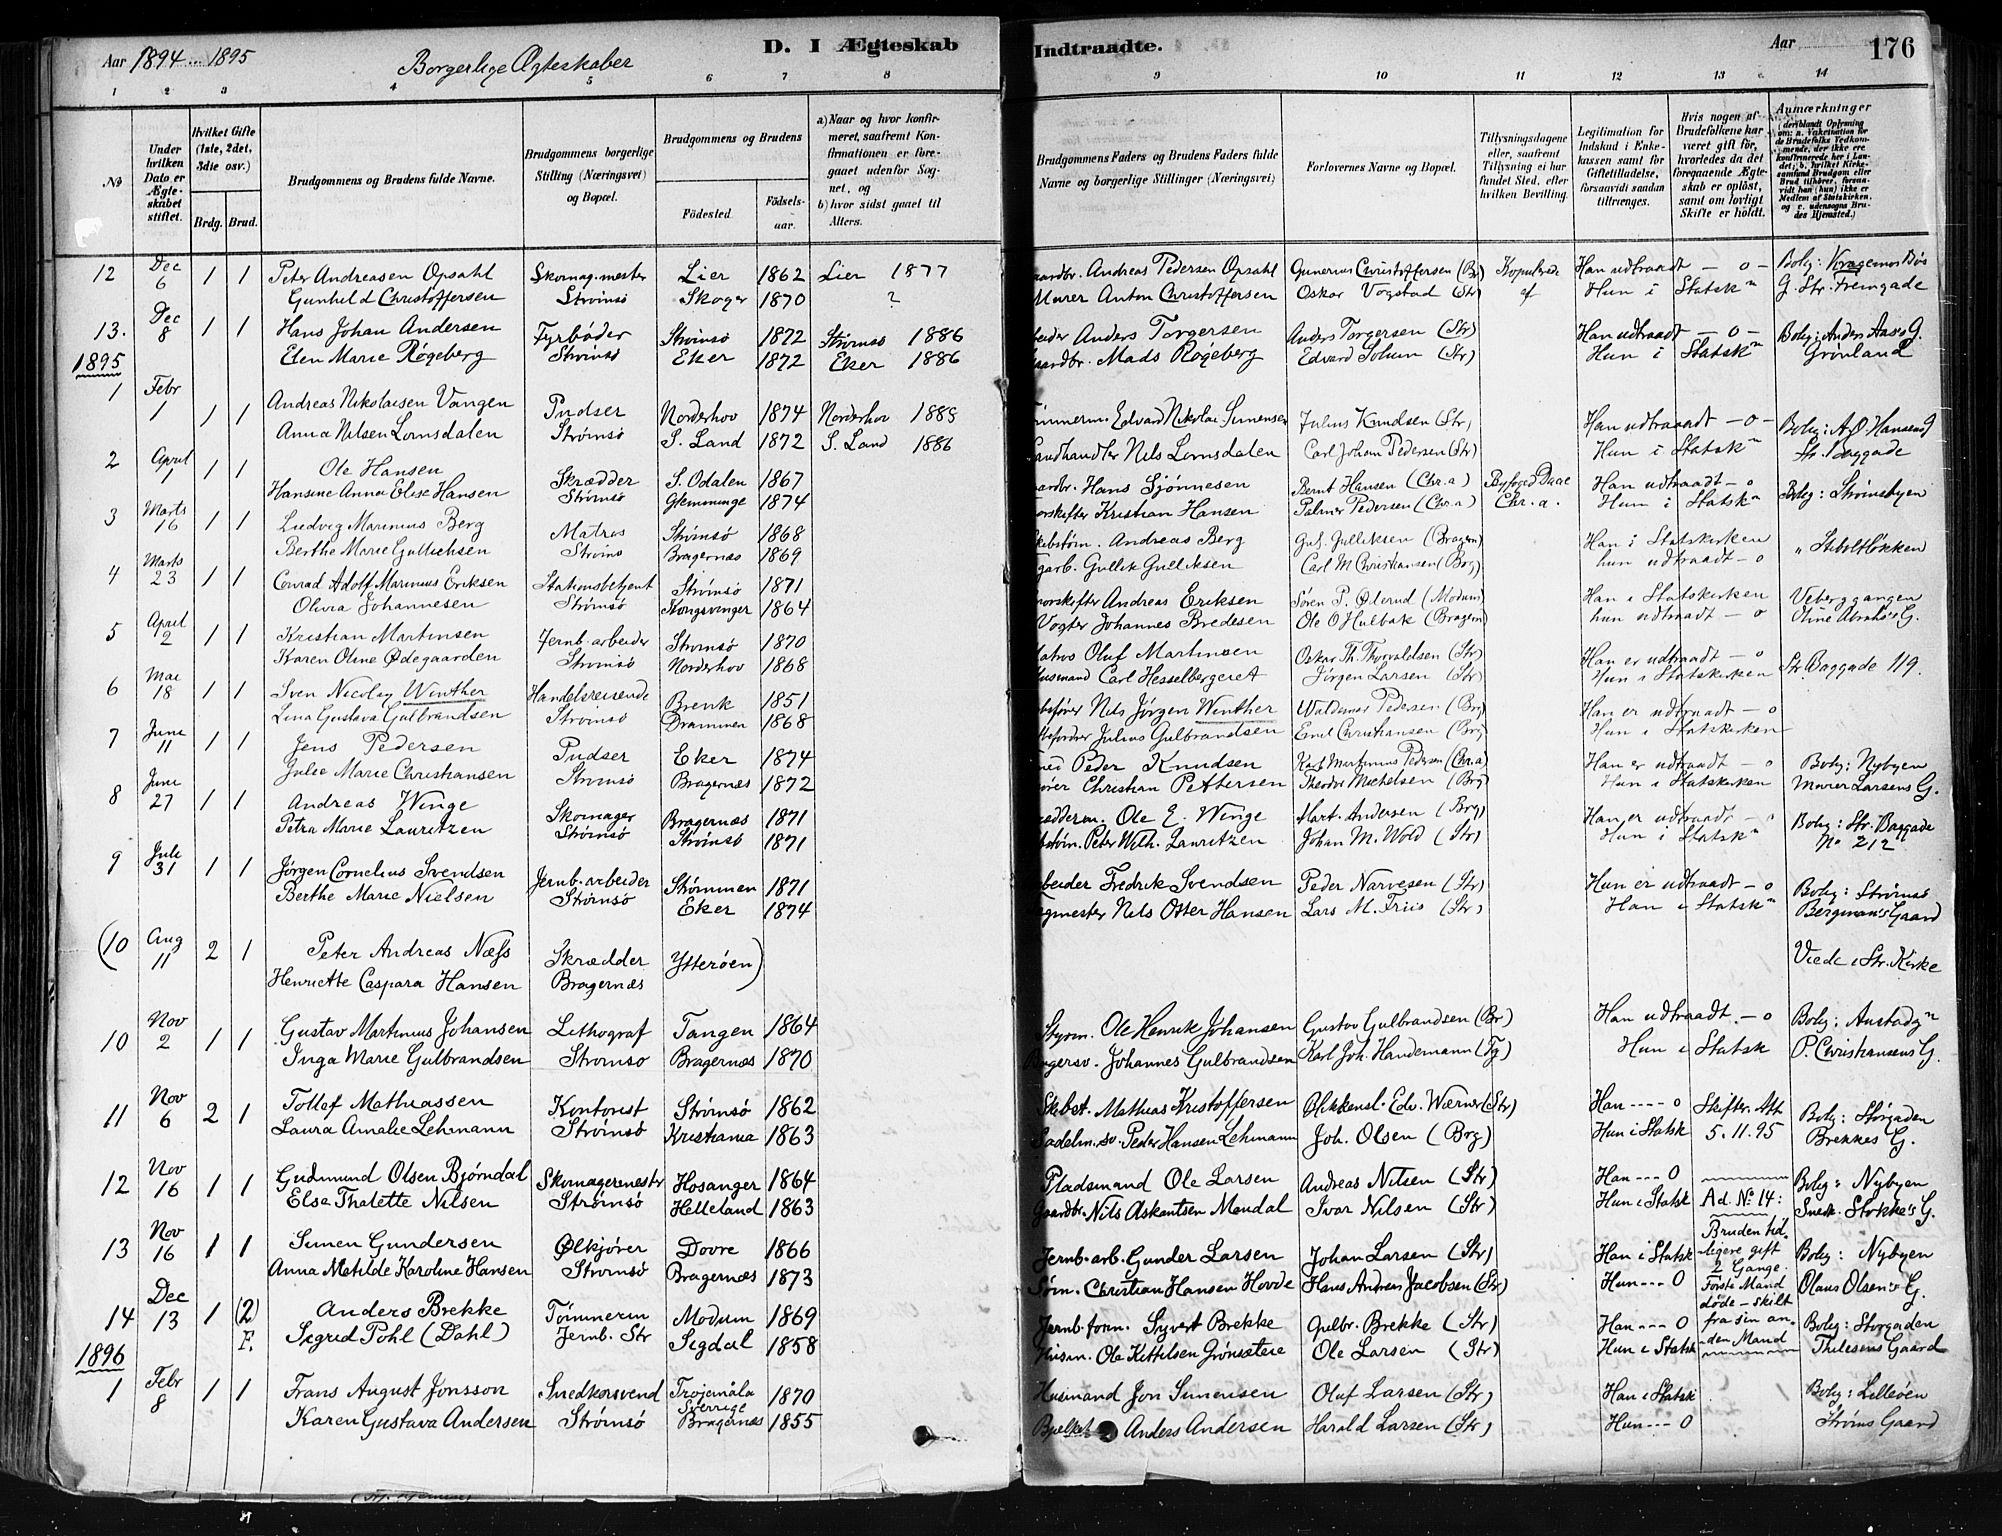 Aar 1894 ... 1895
Borgerlige Ægteskaber
D. I Ægteskab
Indtraadte.
Aar
176
1 2 3 4 5 6 7 8 9 10 11 12 13 14
No
Under hvilken Dato er Ægteskabet stiftet.
Hvilket Gifte (1ste, 2det, 3die osv.)
Brdg. Brud.
Brudgommens og Brudens fulde Navne.
Brudgommens borgerlige Stilling (Næringsvei) og Bopæl.
Brudgommens og Brudens
Födested. Födselsaar.
a) Naar og hvor konfirmeret, saafremt Konfirmationen er foregaaet udenfor Sognet, og
b) hvor sidst gaaet til Alters.
Brudgommens Faders og Brudens Faders fulde Navne og borgerlige Stillinger (Næringsvei)
Forlovernes Navne og Bopæl.
Tillysningsdagene eller, saafremt Tillysning ei har fundet Sted, efter hvilken Bevilling.
Legitimation for Indskud i Enkekassen samt for Giftetilladelse, forsaavidt saadan tiltrænges.
Hvis nogen af Brudefolkene har været gift för, hvorledes da det foregaaende Ægteskab er oplöst, samt om lovligt Skifte er holdt.
Anmærkninger (deriblandt Oplysning om: a. Vakcination for de Brudefolks Vedkommende, der ikke ere konfirmerede her i Landet; b. hvilket Kirkesamfund Brudgom eller Brud tilhörer, forsaavidt han (hun) ikke er Medlem af Statskirken, og c. udensogns Brudes Hjemsted.)
12 Dec 6 1 1 Peter Andreasen Opsahl Skomag.mester Lier 1862 Lier 1877 Andreas Pedersen Opsahl Gunerius Christoffersen (Br) Kopulerede Han udtraadt — o — Bolig:
Gunhild Christoffersen Strømsö Skoger 1870 ? Murer Anton Christoffersen Oskar Vogstad (Str) af Hun i Statsk G. Str. Fremgade
13. Dec 8 1 1 Hans Johan Andersen Fyrbøder Strömsö 1872 Strömsö 1886 Anders Torgersen Anders Torgersen (Str) Han udtraadt — o — Bolig: Anders Aas's G.
1895 Elen Marie Røgeberg Strömsö Eker 1872 Eker 1886 Mads Røgeberg Edvard Solum (Str) Hun i Statsk Grønland
1 Febr 1 1 1 Andreas Nikolaisen Vangen Pudser Norderhov 1874 Norderhov 1889 Edvard Nikolai Simensen Julius Knudsen (Str) Han udtraadt — o — Bolig: A. O Hansens G
Anna Nilsen Lomsdalen Strømsö S. Land 1872 S. Land 1886 Nils Lomsdalen Carl Johan Pedersen (Str) Hun i Statsk Str. Baggade
2 April 1 1 1 Ole Hansen Skrædder S. Odalen 1867 Hans Sjønnesen Bernt Hansen (Chr.a) Byfoged Daae Han udtraadt — o Bolig: Strömsbyen
Hansine Anna Elise Hansen Strömsö Glemminge 1874 Kristian Hansen Palmer Pedersen (Chr.a) Chr.a. Hun i Statsk
3 Marts 16 1 1 Ludvig Marinius Berg Matros Strømsö 1868 Andreas Berg Gul. Gulliksen (Bragern) Han i Statskirken
Berthe Marie Gullichsen Strömsö Bragernæs 1869 Gullik Gulliksen Carl M Christiansen (Brg) hun udtraadt — o
4 Marts 23 1 1 Conrad Adolf Marinius Eriksen Stationsbetjent Strömsö 1871 Andreas Eriksen Søren P. Øderud (Modum) Han i Statskirken Veberggangen
Olivia Johannesen Strömsö Kongsvinger 1864 Vogter Johannes Bredesen Ole O Hulbak (Bragern) hun udtraadt — o
5 April 2 1 1 Kristian Martinsen Jernb. arbeider Strömsö 1870 Matros Oluf Martinsen Oskar Th. Thorvaldsen (Str) Han er udtraadt — o Str. Baggade 119.
Karen Oline Ødegaarden Strömsö Norderhov 1868 Husmand Carl Hesselbergeret Jørgen Larsen (Str) Hun i Statskirken
6 Mai 18 1 1 Sven Nicolay Winther Handelsreisende Brevik 1851 Nils Jørgen Winther Waldemar Pedersen (Brg) Han er udtraadt — o
Lina Gustava Gulbrandsen Strömsö Drammen 1868 Julius Gulbrandsen Emil Christiansen (Brg) Hun i Statskirken
7 June 11 1 1 Jens Pedersen Pudser Eker 1874 Peder Knudsen Karl Martinius Pedersen (Chr.a) Han er udtraadt — o Bolig: Nybyen
Julie Marie Christiansen Strömsö Bragernæs 1872 Christian Pettersen Theodor Michelsen (Brg) Hun i Statskirken Murer Larsens G.
8 June 27 1 1 Andreas Winge Skomager Bragernæs 1871 Ole E. Winge Mart. Andersen (Brg) Han er udtraadt Bolig: Str. Baggade
Petra Marie Lauritzen Strømsö Strømsö 1871 Peter Wilh. Lauritzen Johan M. Wold (Str) Hun i Statsk No 212
9 Juli 31 1 1 Jörgen Cornelius Svendsen Jernb. arbeider Strömmen 1871 Fredrik Svendsen Peder Narvesen (Str) Hun er udtraadt — o Bolig: Strømsö
Berthe Marie Nielsen Strømsö Eker 1874 Nils Otter Hansen Lars M. Friis (Str) Han i Statsk Bergman's Gaard
(10 Aug 11 2 1 Peter Andreas Næss Skrædder Ytterøen) Viede i Str. Kirke
Henriette Caspara Hansen Bragernæs
10 Nov 2 1 1 Gustav Martinius Johansen Lithograf Tangen 1864 Styrm. Ole Henrik Johansen Gustav Gulbrandsen (Br) Han udtraadt — o Bolig: Austadgn
Inga Marie Gulbrandsen Strömsö Bragernæs 1870 Johannes Gulbrandsen Karl Joh. Handemann (Tg) Hun i Statsk P. Christiansens G.
11 Nov 6 2 1 Tollef Mathiassen Kontorist Strømsö 1862 Skibst. Mathias Kristoffersen Edv. Wærner (Str) Han ---- o Skifte. Att Bolig: Storgaden
Laura Amalie Lehmann Strömsö Kristiania 1863 Sadelm.sv. Peder Hansen Lehmann Joh. Olsen (Brg) Hun i Statsk 5.11.95 Brekkes G.
12 Nov 16 1 1 Gudmund Olsen Bjørndal Skomagermestr Hosanger 1864 Pladsmand Ole Larsen Andreas Nilsen (Str) Han --- 0 Bolig: Nybyen
Else Thalette Nilsen Strømsö Helleland 1863 Gaardbr. Nils Askantsen Mondal Ivar Nilsen (Str) Hun i Statsk Ad. No 14: Snedk. Stokke's G.
13 Nov 16 1 1 Simen Gundersen Ølkjører Dovre 1866 Jernb. arb. Gunder Larsen Johan Larsen (Str) Han i Statsk Bruden tidligere gift 2 Gange. Bolig: Nybyen
Anna Matilde Karoline Hansen Strömsö Bragernæs 1873 Søm. Christian Hansen Hovde Hans Andreas Jacobsen (Str) Hun --- 0 Første Mand døde — skilt Olaus Olsens G.
14 Dec 13 1 (2) Anders Brekke Tömmerm Modum 1869 Jernb. form. Syvert Brekke Gulbr. Brekke (Str) Han --- 0 fra sin anden Mand Bolig: Storgaden
1896 F. Sigrid Pohl (Dahl) Jernb. Str Sigdal 1858 Husm. Ole Kittilsen Grönsæteie Ole Larsen (Str) Hun i Statsk Thilesens Gaard
1 Febr 8 1 1 Frans August Jonsson Snedkersvend Trojemåla Sverrige 1870 Husmand Jon Simensen Oluf Larsen (Str) Han i Statsk Bolig: Lilleöen
Karen Gustava Andersen Strømsö Bragernæs 1855 Anders Andersen Harald Larsen (Str) Hun --- 0 Strøms Gaard